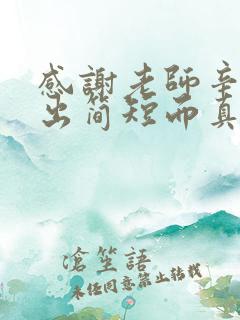 感謝老師辛
出简短而真
滄笙語
未经同意禁止转载